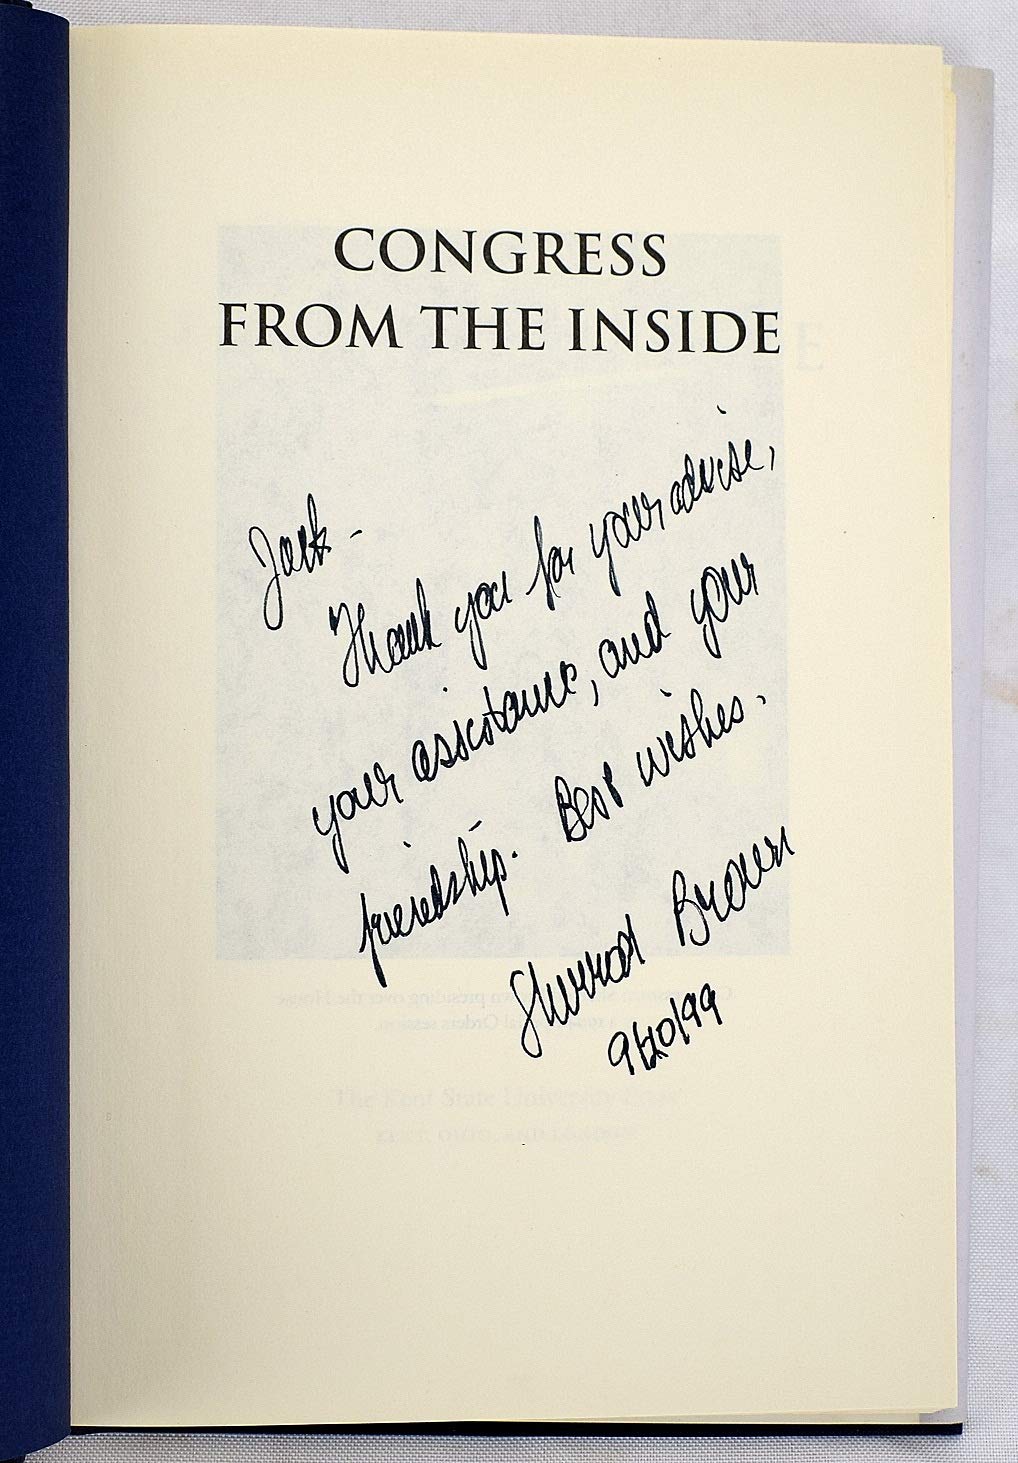 CONGRESS
FROM THE INSIDE
Jack -
Thank you for your advise,
your assistance, and your
friendship. Best wishes.
Sherrod Brown
9/20/99
The Kent State University Press
KENT, OHIO, AND LONDON